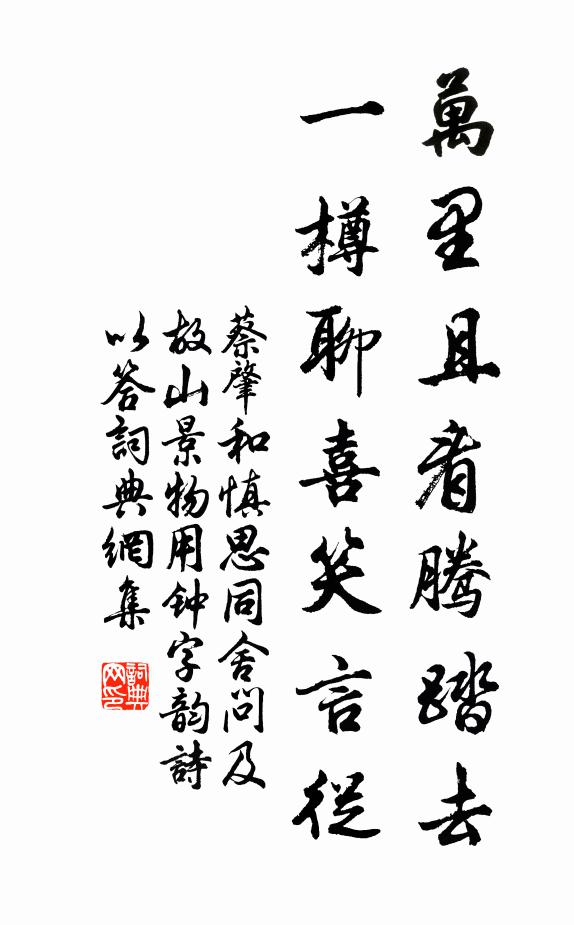 萬里且看騰踏去
一樽聊喜笑言從
蔡肇和慎思同舍問及
故山景物用钟字韵詩
以答詞典網集
詞典
网印